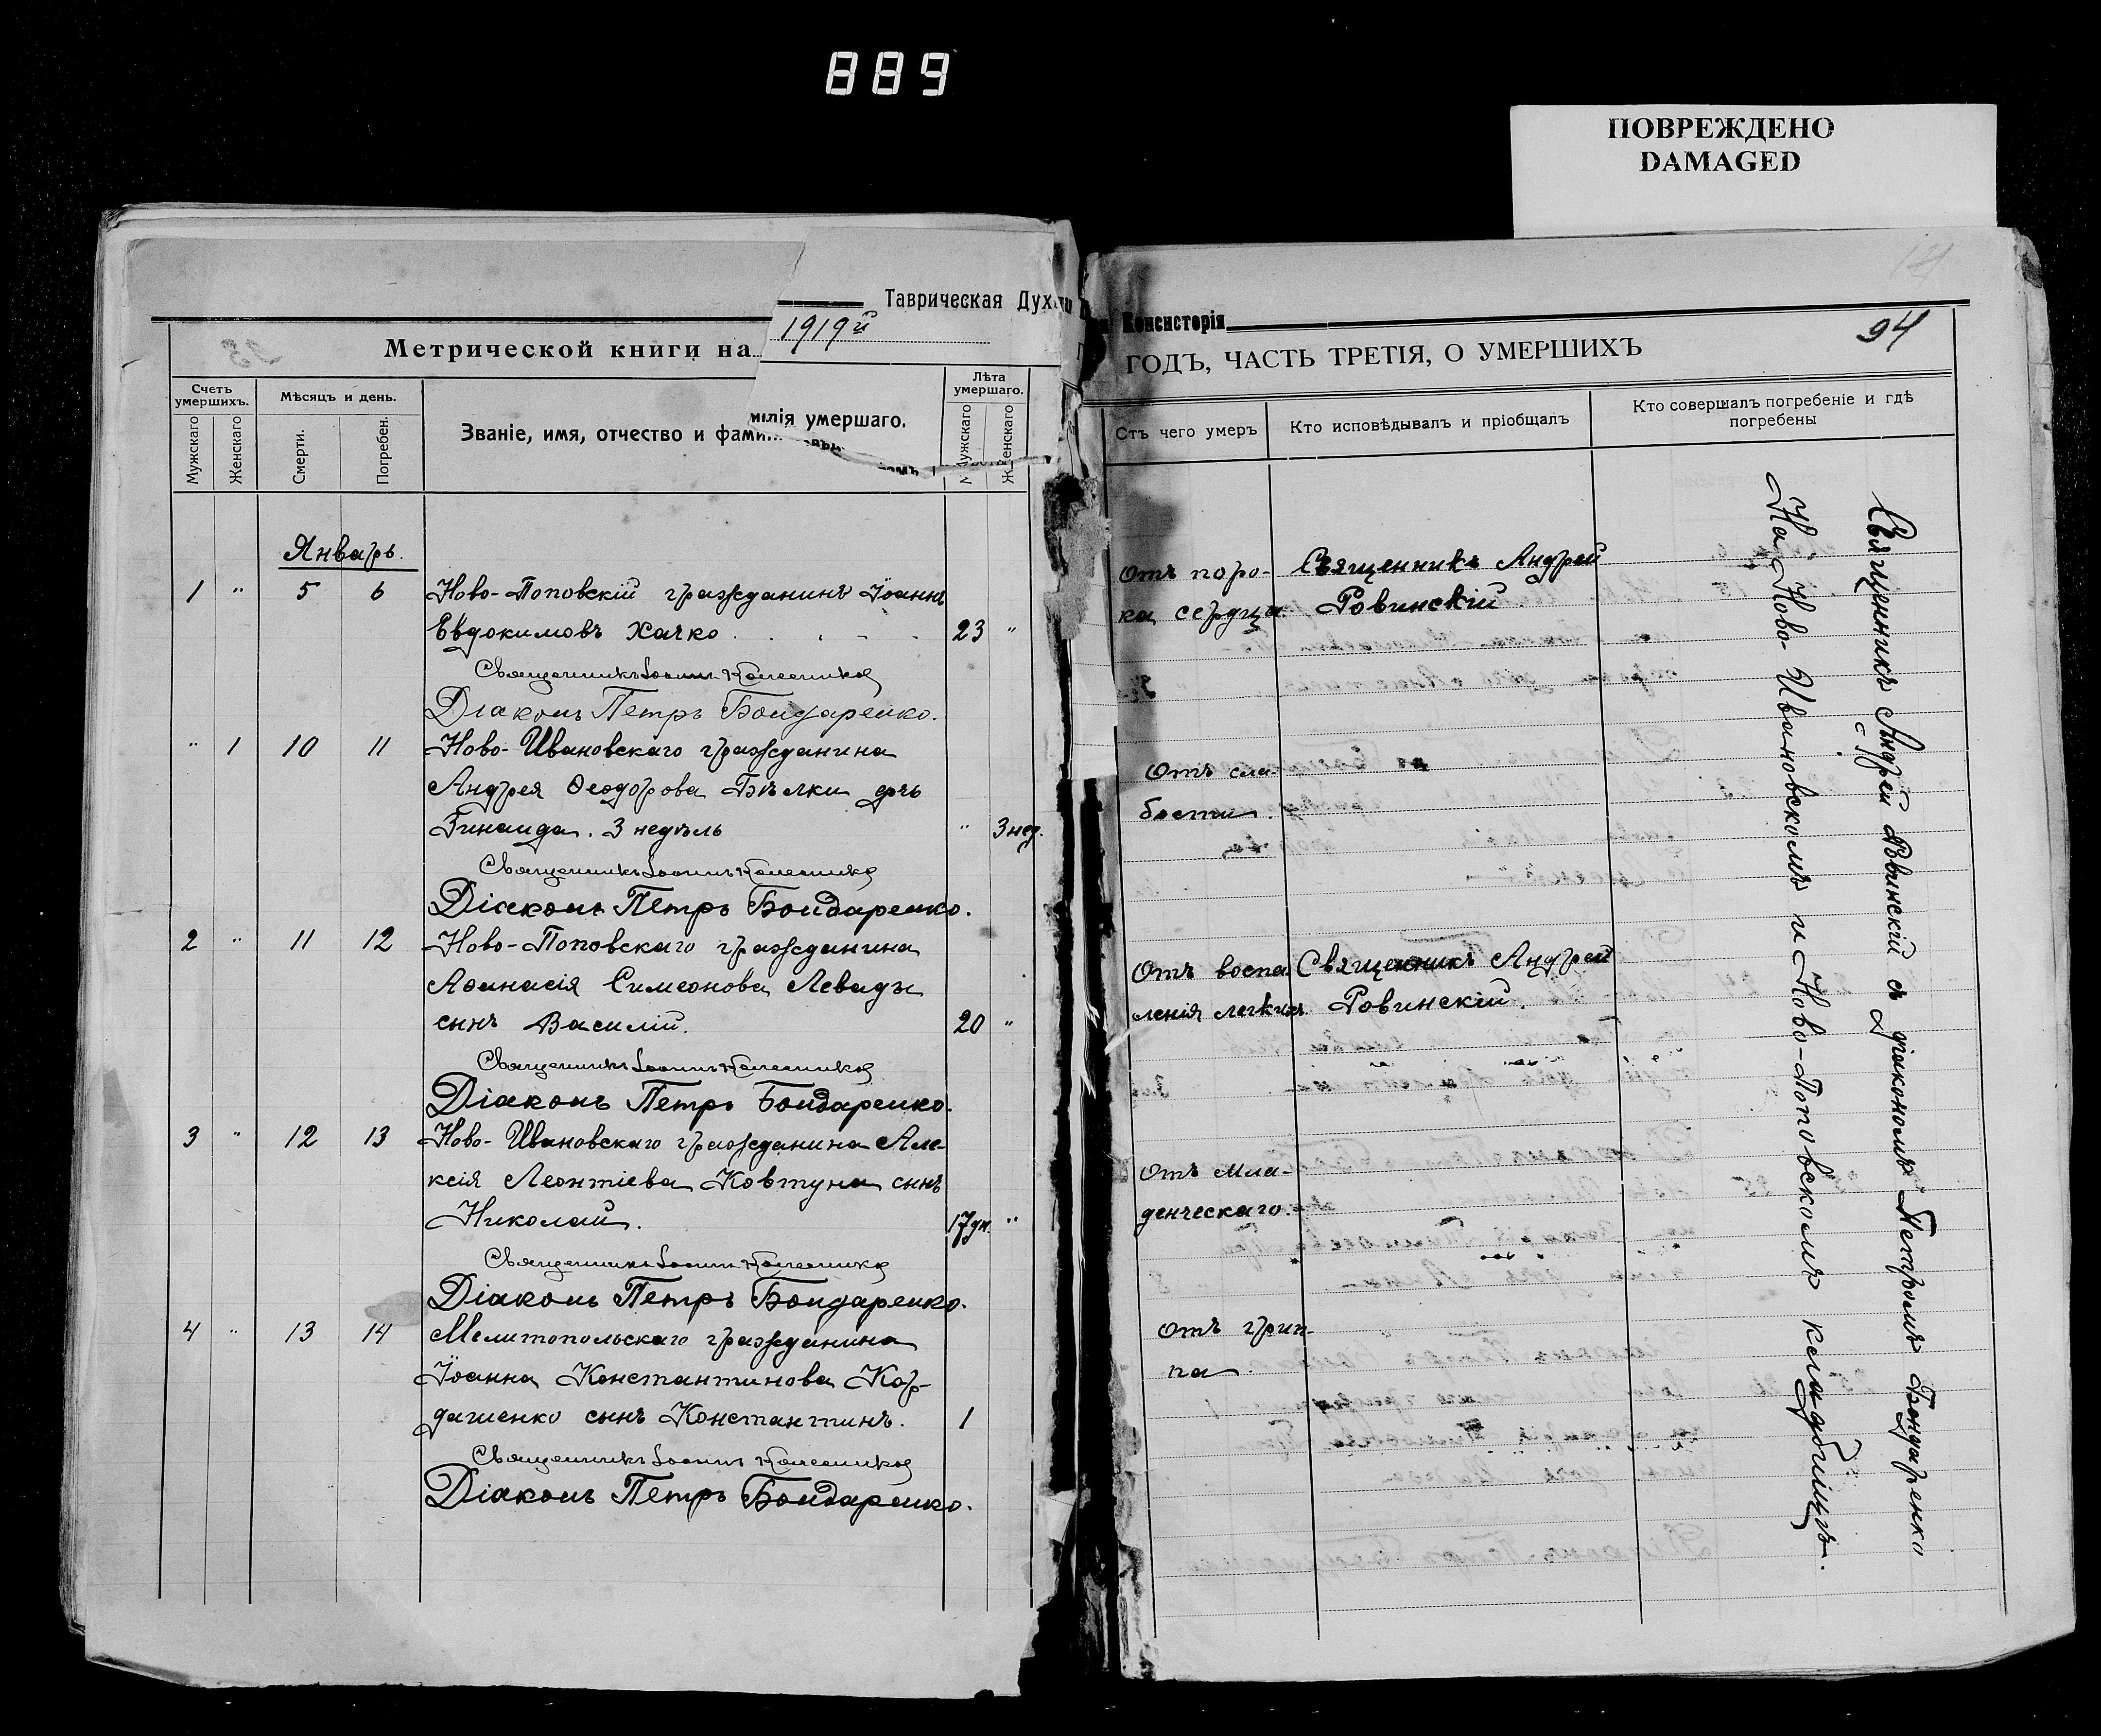 889
ПОВРЕЖДЕНО
DAMAGED
Таврическая Дух
Метрической книги на 1919й
Счетъ умершихъ.
Мужскаго
Женскаго
Мѣсяцъ и день.
Смерти.
Погребен.
Званіе, имя, отчество и фами
милія умершаго.
Лѣта умершаго.
Мужскаго
Женскаго
Январь.
1 " 5 6 Ново-Поповскій гражданинъ Іоаннъ
Евдокимовъ Хачко 23 "
Священникъ Іоаннъ Колесниковъ
Діаконъ Петръ Бондаренко.
" 1 10 11 Ново-Ивановскаго гражданина
Андрея Ѳеодорова Бѣлки дчь
Зинаида. 3 недѣль " 3 нед.
Священникъ Іоаннъ Колесниковъ
Діаконъ Петръ Бондаренко.
2 " 11 12 Ново-Поповскаго гражданина
Аѳанасія Симеонова Левады
сынъ Василій. 20 "
Священникъ Іоаннъ Колесниковъ
Діаконъ Петръ Бондаренко.
3 " 12 13 Ново-Ивановскаго гражданина Але-
ксія Леонтіева Ковтуна сынъ
Николай. 17 дн. "
Священникъ Іоаннъ Колесниковъ
Діаконъ Петръ Бондаренко.
4 " 13 14 Мелитопольскаго гражданина
Іоанна Константинова Кор-
дашенко сынъ Константинъ. 1
Священникъ Іоаннъ Колесниковъ
Діаконъ Петръ Бондаренко.
Консисторія
94
ГОДЪ, ЧАСТЬ ТРЕТІЯ, О УМЕРШИХЪ
Отъ чего умеръ
Кто исповѣдывалъ и пріобщалъ
Кто совершалъ погребеніе и гдѣ
погребены
Отъ поро- Священникъ Андрей
ка сердца. Ровинскій.
Отъ сла-
бости.
Отъ воспа Священникъ Андрей
ленія легкихъ Ровинскій.
Отъ мла-
денческаго.
Отъ грип-
па.
Священникъ Андрей Ровинскій съ діакономъ Петромъ Бондаренко
На Ново-Ивановскомъ и Ново-Поповскомъ кладбищѣ.